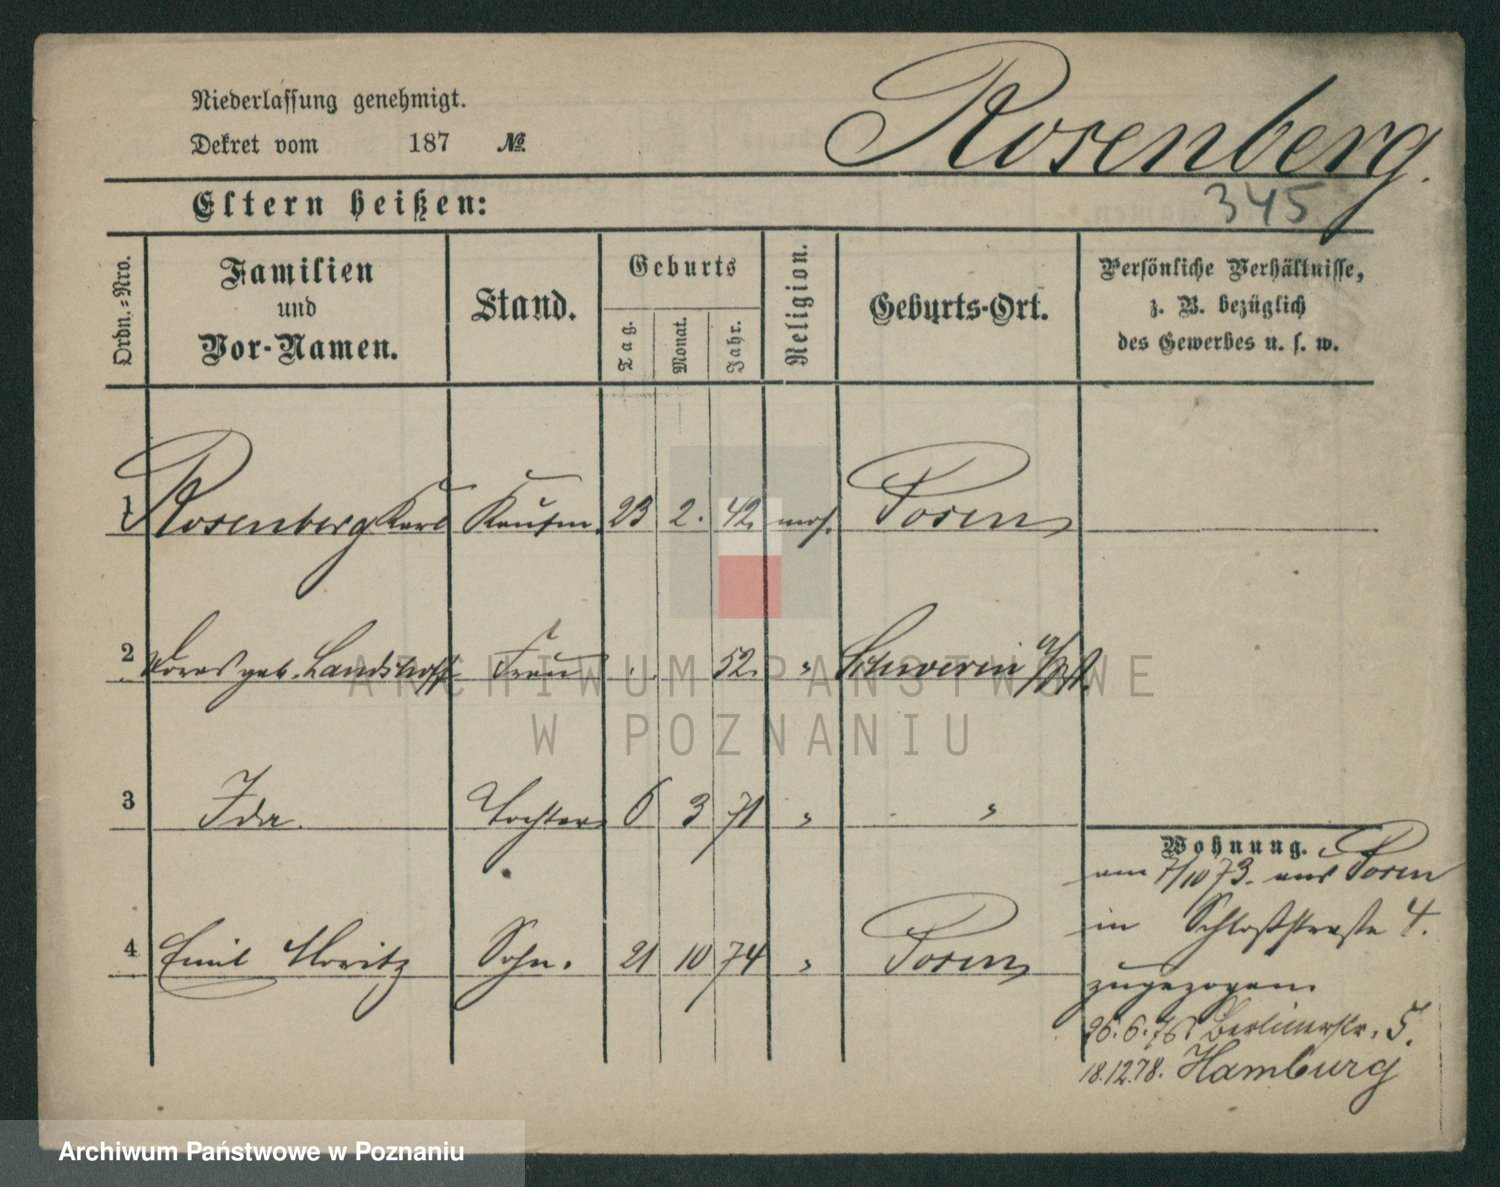 Niederlassung genehmigt.
Dekret vom 187 №
Rosenberg.
345
Eltern heißen:
Ordn.-Nro.
Familien
und
Vor-Namen.
Stand.
Geburts
Tag.
Monat.
Jahr.
Religion.
Geburts-Ort.
Persönliche Verhältnisse,
z. B. bezüglich
des Gewerbes u. s. w.
1 Rosenberg Karl Kaufm. 23 2. 42. mos. Posen
2 geb. Landshoff Frau 52. " Schwerin a/W.
3 Ida. Tochter 6 3 71 " "
4 Emil Moritz Sohn. 21 10 74 " Posen
Wohnung.
am 7/10 73. aus Posen
in Schloßstraße 4.
zugezogen.
26.6.76 Berlinerstr. 5.
18.12.78. Hamburg
ARCHIWUM PAŃSTWOWE
W POZNANIU
Archiwum Państwowe w Poznaniu